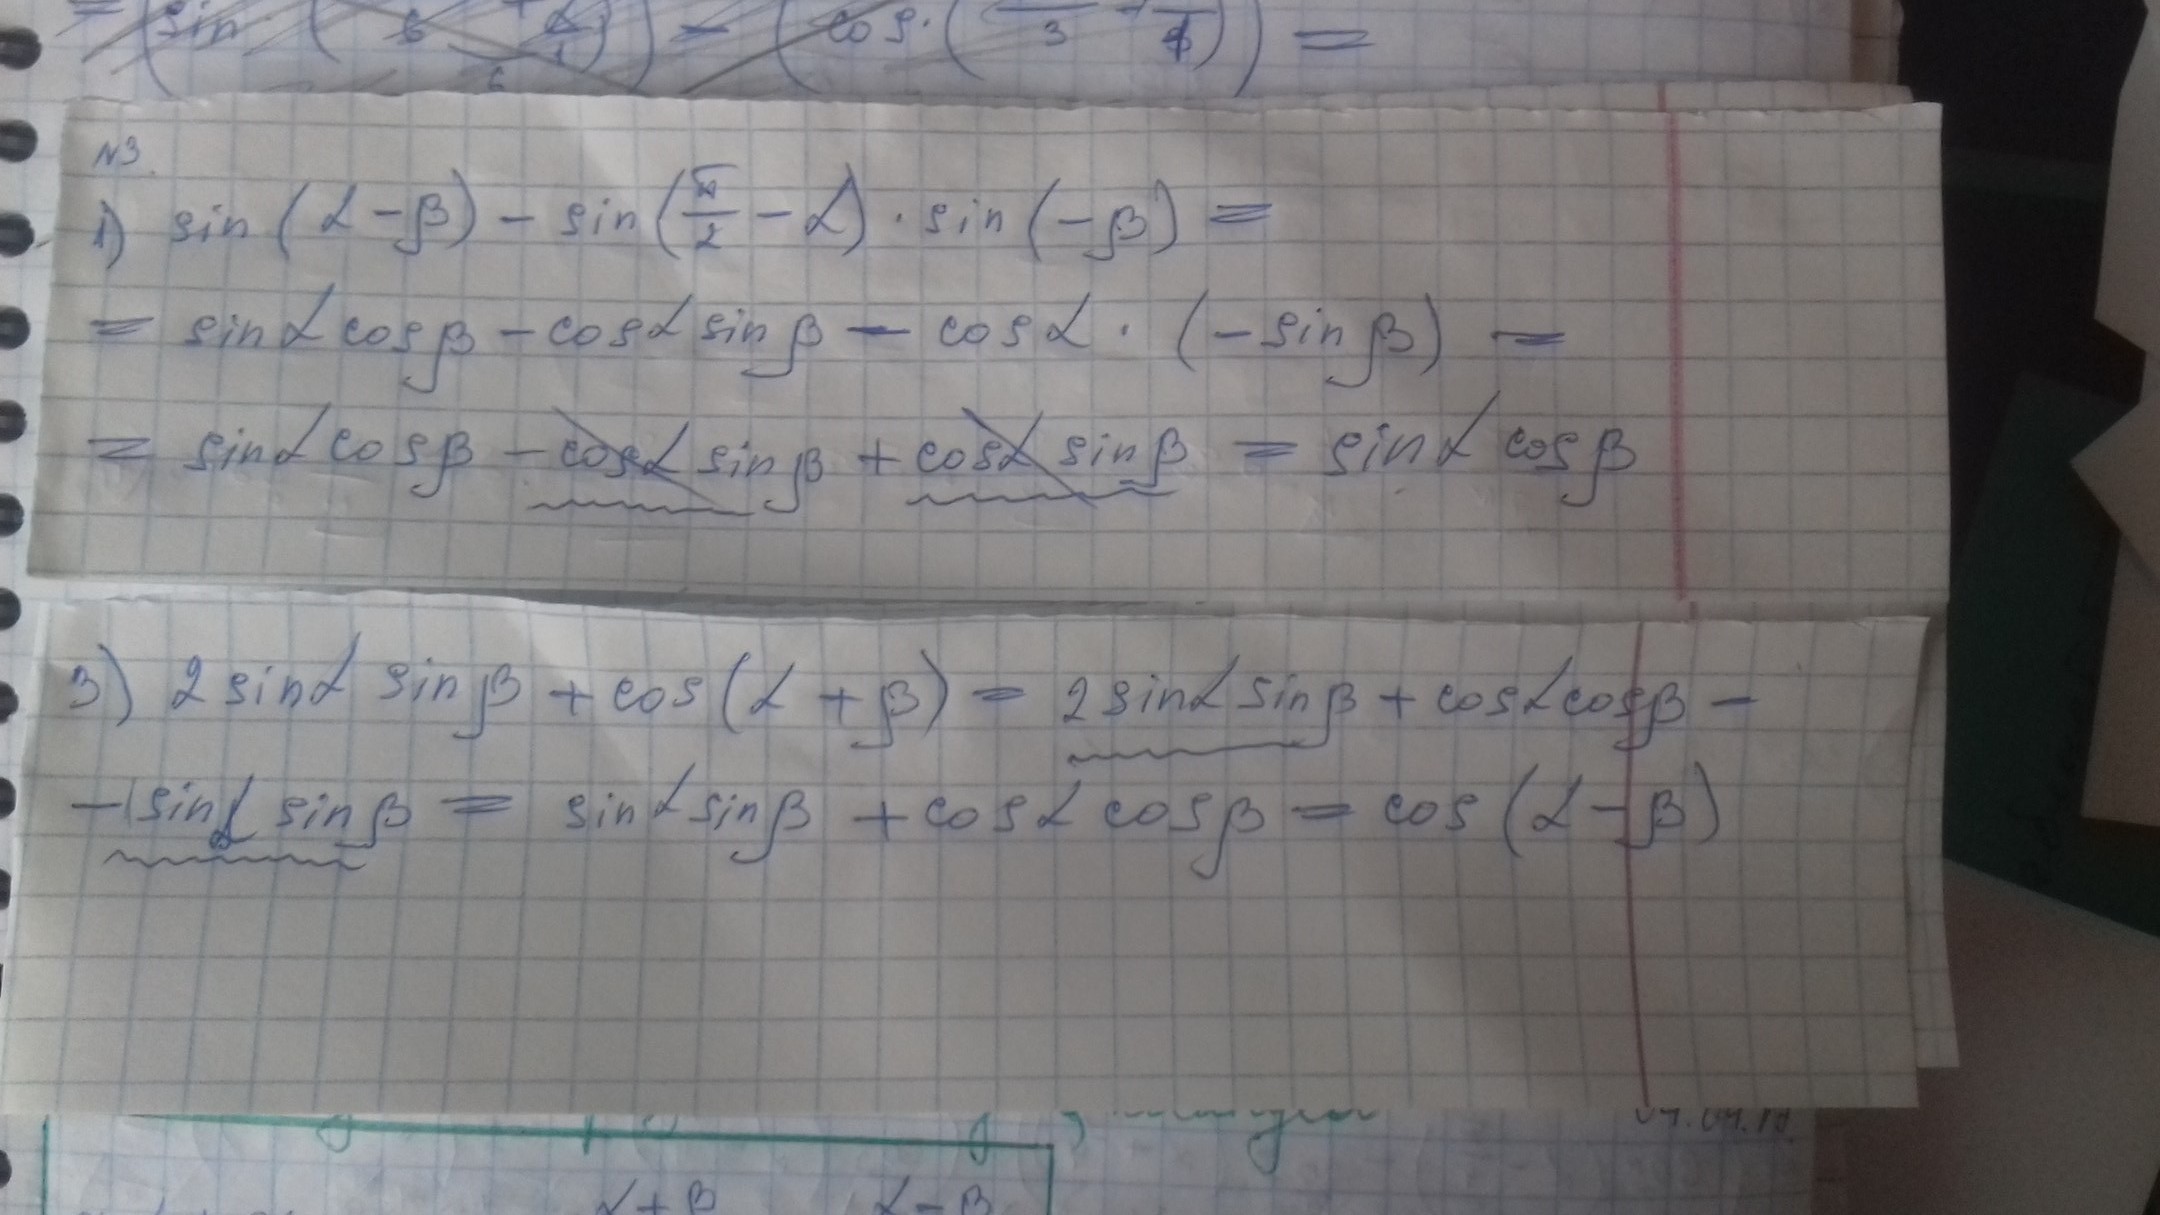 = (sin ( 6 + α ) ) - (cos · ( 3 + ) ) =
N3.
1) sin (α - β) - sin (π/2 - α) · sin (-β) =
= sin α cos β - cos α sin β - cos α · (- sin β) =
= sin α cos β - cos α sin β + cos α sin β = sin α cos β
3) 2 sin α sin β + cos (α + β) = 2 sin α sin β + cos α cos β -
- sin α sin β = sin α sin β + cos α cos β = cos (α - β)
α + β α - β